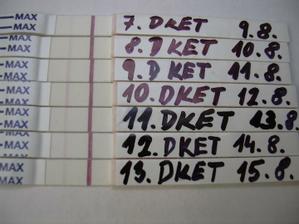 MAX 7. DKET 9.8.
MAX 8. DKET 10.8.
MAX 9. DKET 11.8.
MAX 10. DKET 12.8.
MAX 11. DKET 13.8.
MAX 12. DKET 14.8.
MAX 13. DKET 15.8.